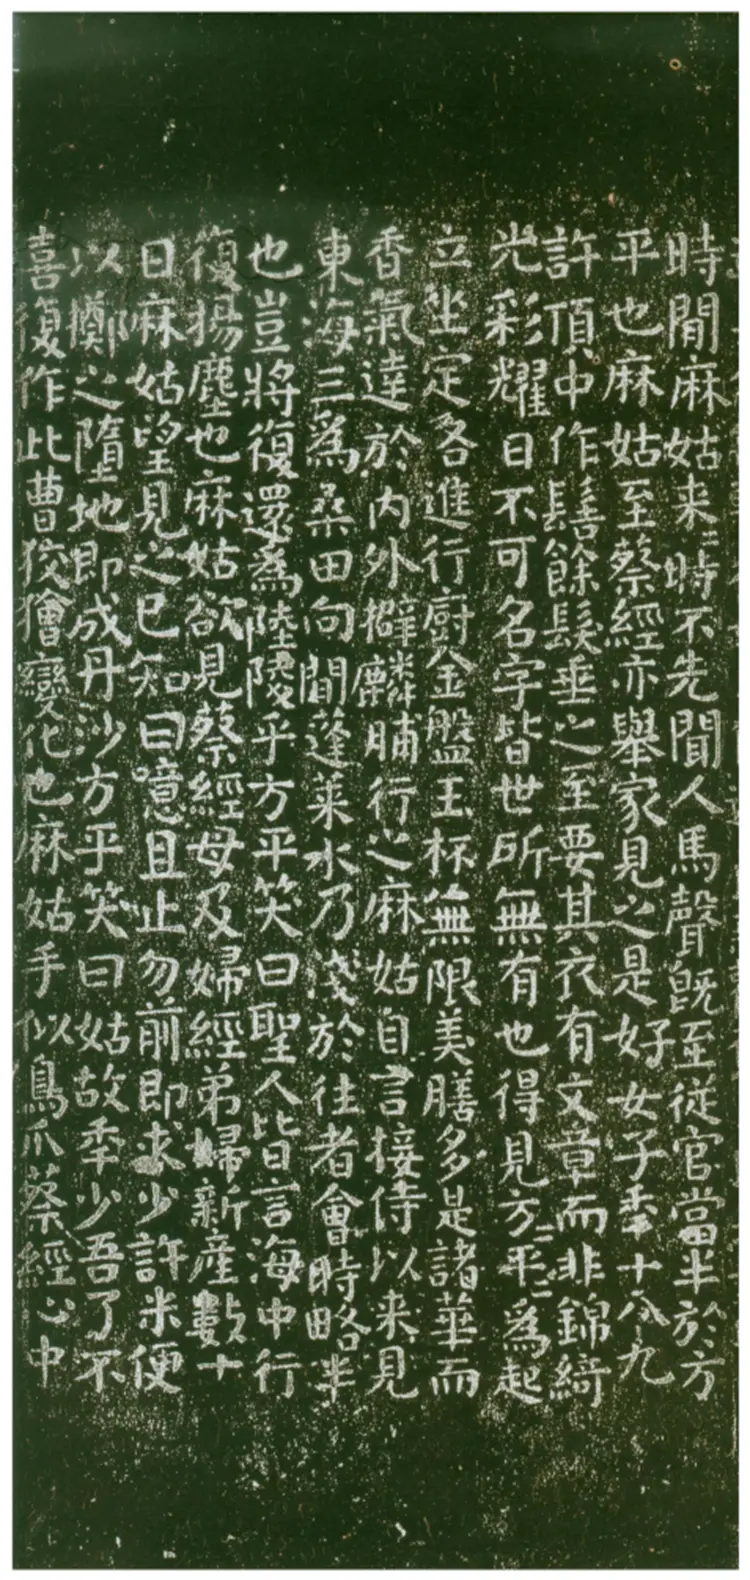 時聞麻姑来〻時不先聞人馬聲既至從官當半於方
平也麻姑至蔡經亦舉家見之是好女子年十八九
許頂中作髻餘髮垂之至要其衣有文章而非錦綺
光彩耀日不可名字皆世所無有也得見方〻平〻為起
立坐定各進行廚金盤玉杯無限美膳多是諸華而
香氣達於内外擗麟脯行之麻姑自言接侍以来見
東海三為桑田向間蓬莱水乃淺於往者會時略半
也豈將復還為陸陵乎方平笑曰聖人皆言海中行
復揚塵也麻姑欲見蔡經母及婦經弟婦新產數十
日麻姑望見之已知曰噫且止勿前即求少許米便
以擲之墮地即成丹沙方平笑曰姑故年少吾了不
喜復作此曹狡獪變化也麻姑手似鳥爪蔡經心中